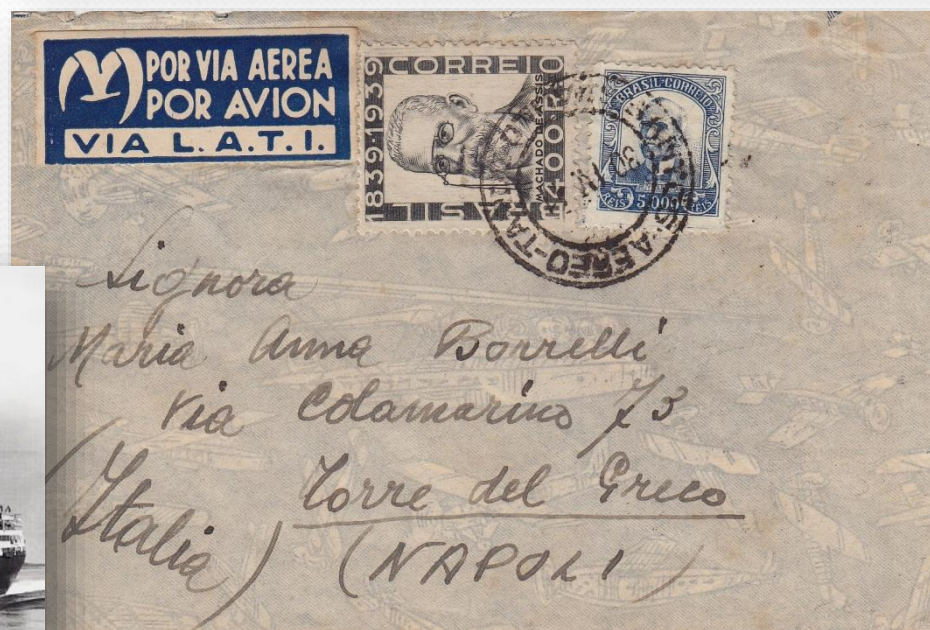 POR VIA AEREA
POR AVION
VIA L.A.T.I.
1839·1939 CORREIO
MACHADO DE ASSIS
400 RS
BRASIL
BRASIL·CORREIO
5.000
REIS REIS
AEREO
Signora
Maria Anna Borrelli
Via Colamarino 73
Torre del Greco
(Italia)
(NAPOLI)